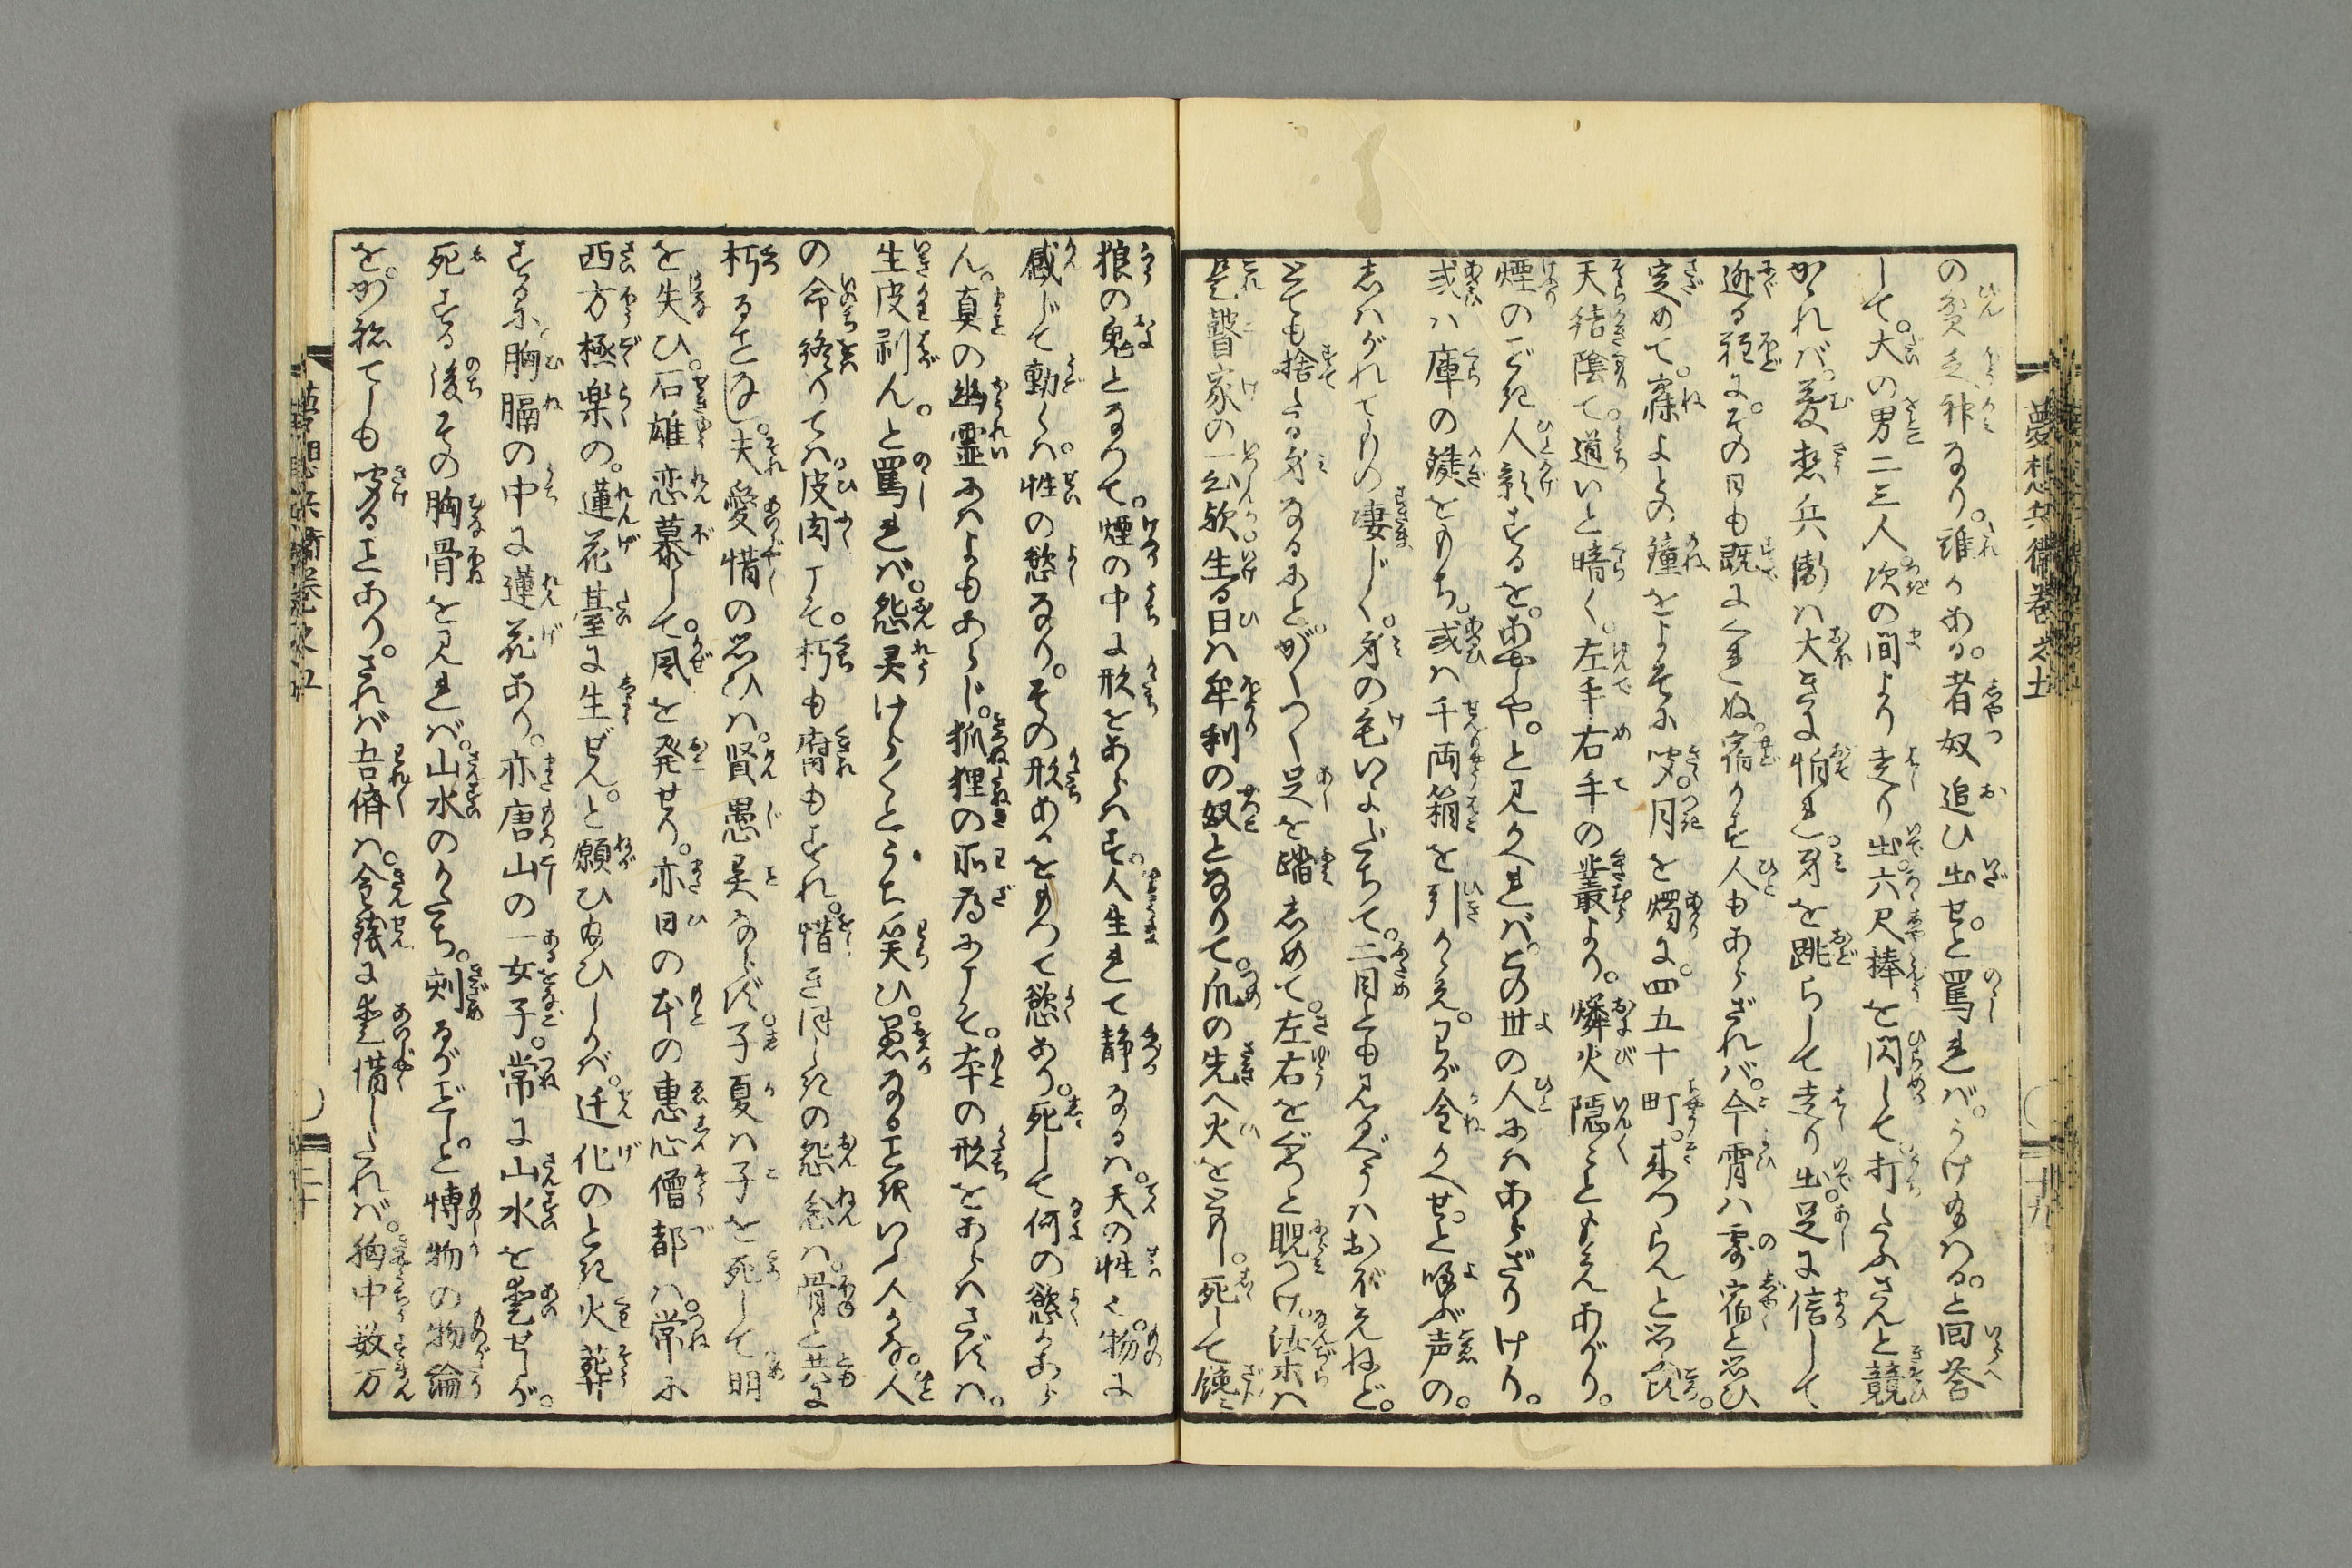 の貧乏神なり。誰かある。者奴追ひ出せ。と罵れば。うけ給はる。と回答
して。大の男二三人次の間より走り出。六尺棒を閃して。打たふさんと競
かゝれば。夢想兵衛は大きに怕れ。身を跳らして走り出。足に信して
逊る程に。その日も既にくれぬ。宿かす人もあらざれば。今霄は霧宿と思ひ
定めて。寐よとの鐘をよそに聞。月を燭に。四五十町。来つらんと思ふ。
天結陰て。道いと暗く。左手右手の叢より。燐火隠々ともえあがり。
煙のごと人影するを。あやしや。と見かへれば。この世の人にはあらざりけり。
或は庫の鎹をもち。或は千両箱を引かゝえ。わが金かへせ。と喚ぶ声の。
しはがれてもの凄じく。身の毛いよだちて。二目とも見るべうはおぼえねど。
とても捨たる身なるにと。がくつく足を踏しめて。左右をぐつと睨つけ。汝末は
是瞽家の一公欤。生る日は牟利の奴となりて。爪の先へ火をともし。死して餓
狼の鬼となつて。煙の中に形をあらはす。人生れて静なるは。天の性く。物に
感じて動くは。性の慾なり。その形あるをもつて慾あり。死して何の慾かあら
ん。真の幽霊にはよもあらじ。狐狸の所為にこそ。本の形をあらはさずは。
生皮剥ん。と罵れば。怨灵けら〱とうち笑ひ。愚なることをいふ人かな。人
の命終りては。皮肉こそ。朽も腐もすれ。惜きほしきの怨念は。骨と共に
朽ることなし。夫愛惜の思ひは。賢愚異ならず。子夏は子を死して明
を失ひ。石雄恋慕して。風を発せり。亦日の本の恵心僧都は。常に
西方極楽の。蓮花臺に生ぜん。と願ひ給ひしかば。迁化のとき火葬
するに胸膈の中に蓮花あり。亦唐山の一女子。常に山水を愛せしが。
死する後その胸骨を見れば。山水のかたち。刻るがごとし。と博物の物論
を。かねても聞ることあり。されば吾儕は。金銭に愛惜したれば。胸中数万
夢想兵衛巻之上
十九
二十